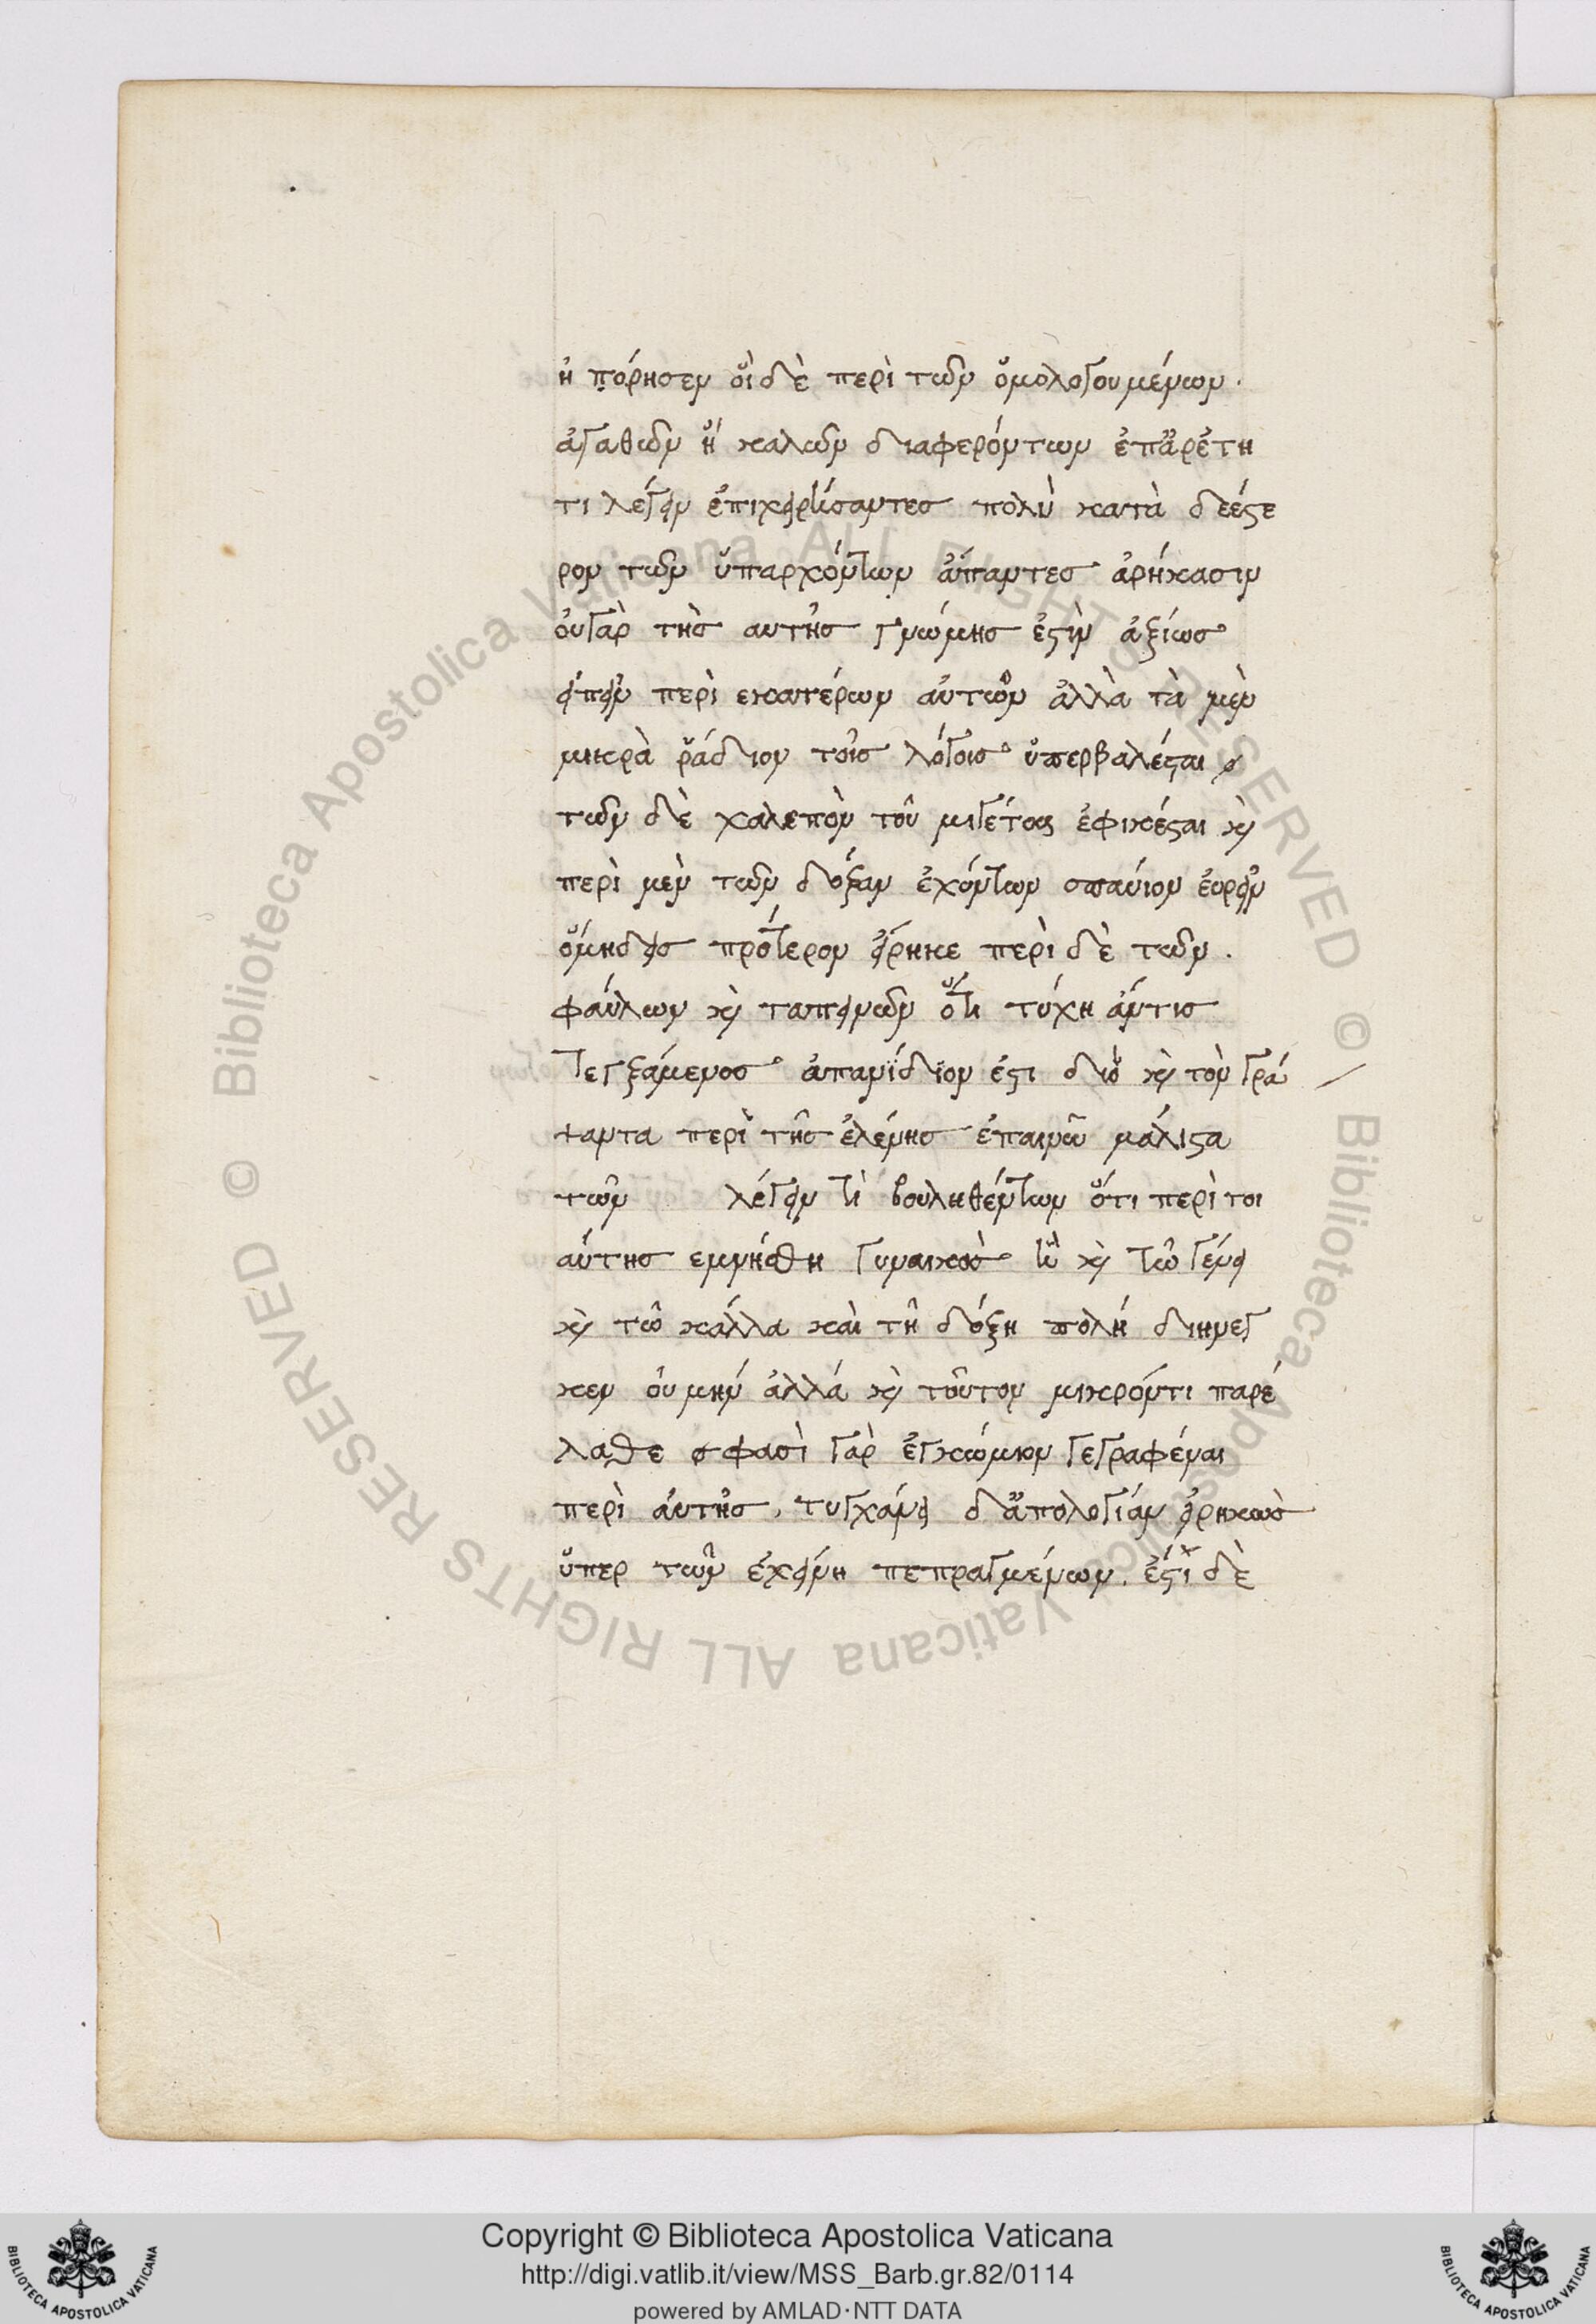 ἠ πόρησεν οἵ δὲ περὶ τῶν ὅμολογουμένων.
ἀγαθῶν ἤ καλῶν διαφερόντων ἐπἀρἐτη
τι λέγειν ἐπιχειρίσαντες πολὺ κατὰ δεέστε
ρον τῶν ὕπαρχόντων ἅπαντες ἀρήκασιν
ὀυγὰρ τὴς αυτῆς γνώμης ἐστὶν ἀξίως
ἐίπεῖν περὶ εκατέρων αὐτῶν ἀλλὰ τὰ μὲν
μικρὰ ῥάδιον τοῖς λόγοις ὕπερβαλέσται
τῶν δὲ χαλεπὸν τοῦ μιγέτους ἐφικέσται κὶ
περὶ μὲν τῶν δόξαν ἐχόντων σπαύιον ἑυρεῖν
ὅμηδεις πρότερον εἴρηκε περὶ δὲ τῶν.
φαύλων κὶ ταπεινῶν ὅτι τύχη ἄντις
τεγξάμενος ἀπανίδϊον ἐστι διὁ κὶ τὸν γρά
ψαντα περὶ τῆς ἑλένης ἐπαινῶ μάλιστα
τῶν λέγειν τὶ βουληθέντων ὅτι περὶ τοι
αύτης εμνήσθη γυναικὸς ἳὴ κὶ τῶ γένει
κὶ τῶ κάλλα καὶ τῆ δόξη πολή διηνεγ
κεν οὐ μὴν ἀλλά κὶ τοῦτον μικρόντι παρέ
λαθε φασὶ γὰρ ἐγκώμιον γεγραφέναι
περὶ ἀυτῆς, τυγχάνει δἀπολογίαν εἰρηκὼς
ὕπερ τῶν ἐχείνη πεπραγμένων. ἐστὶ δὲ
Copyright © Biblioteca Apostolica Vaticana
http://digi.vatlib.it/view/MSS_Barb.gr.82/0114
powered by AMLAD·NTT DATA
BIBLIOTECA APOSTOLICA VATICANA
BIBLIOTECA APOSTOLICA VATICANA
© Biblioteca Apostolica Vaticana ALL RIGHTS RESERVED
© Biblioteca Apostolica Vaticana ALL RIGHTS RESERVED